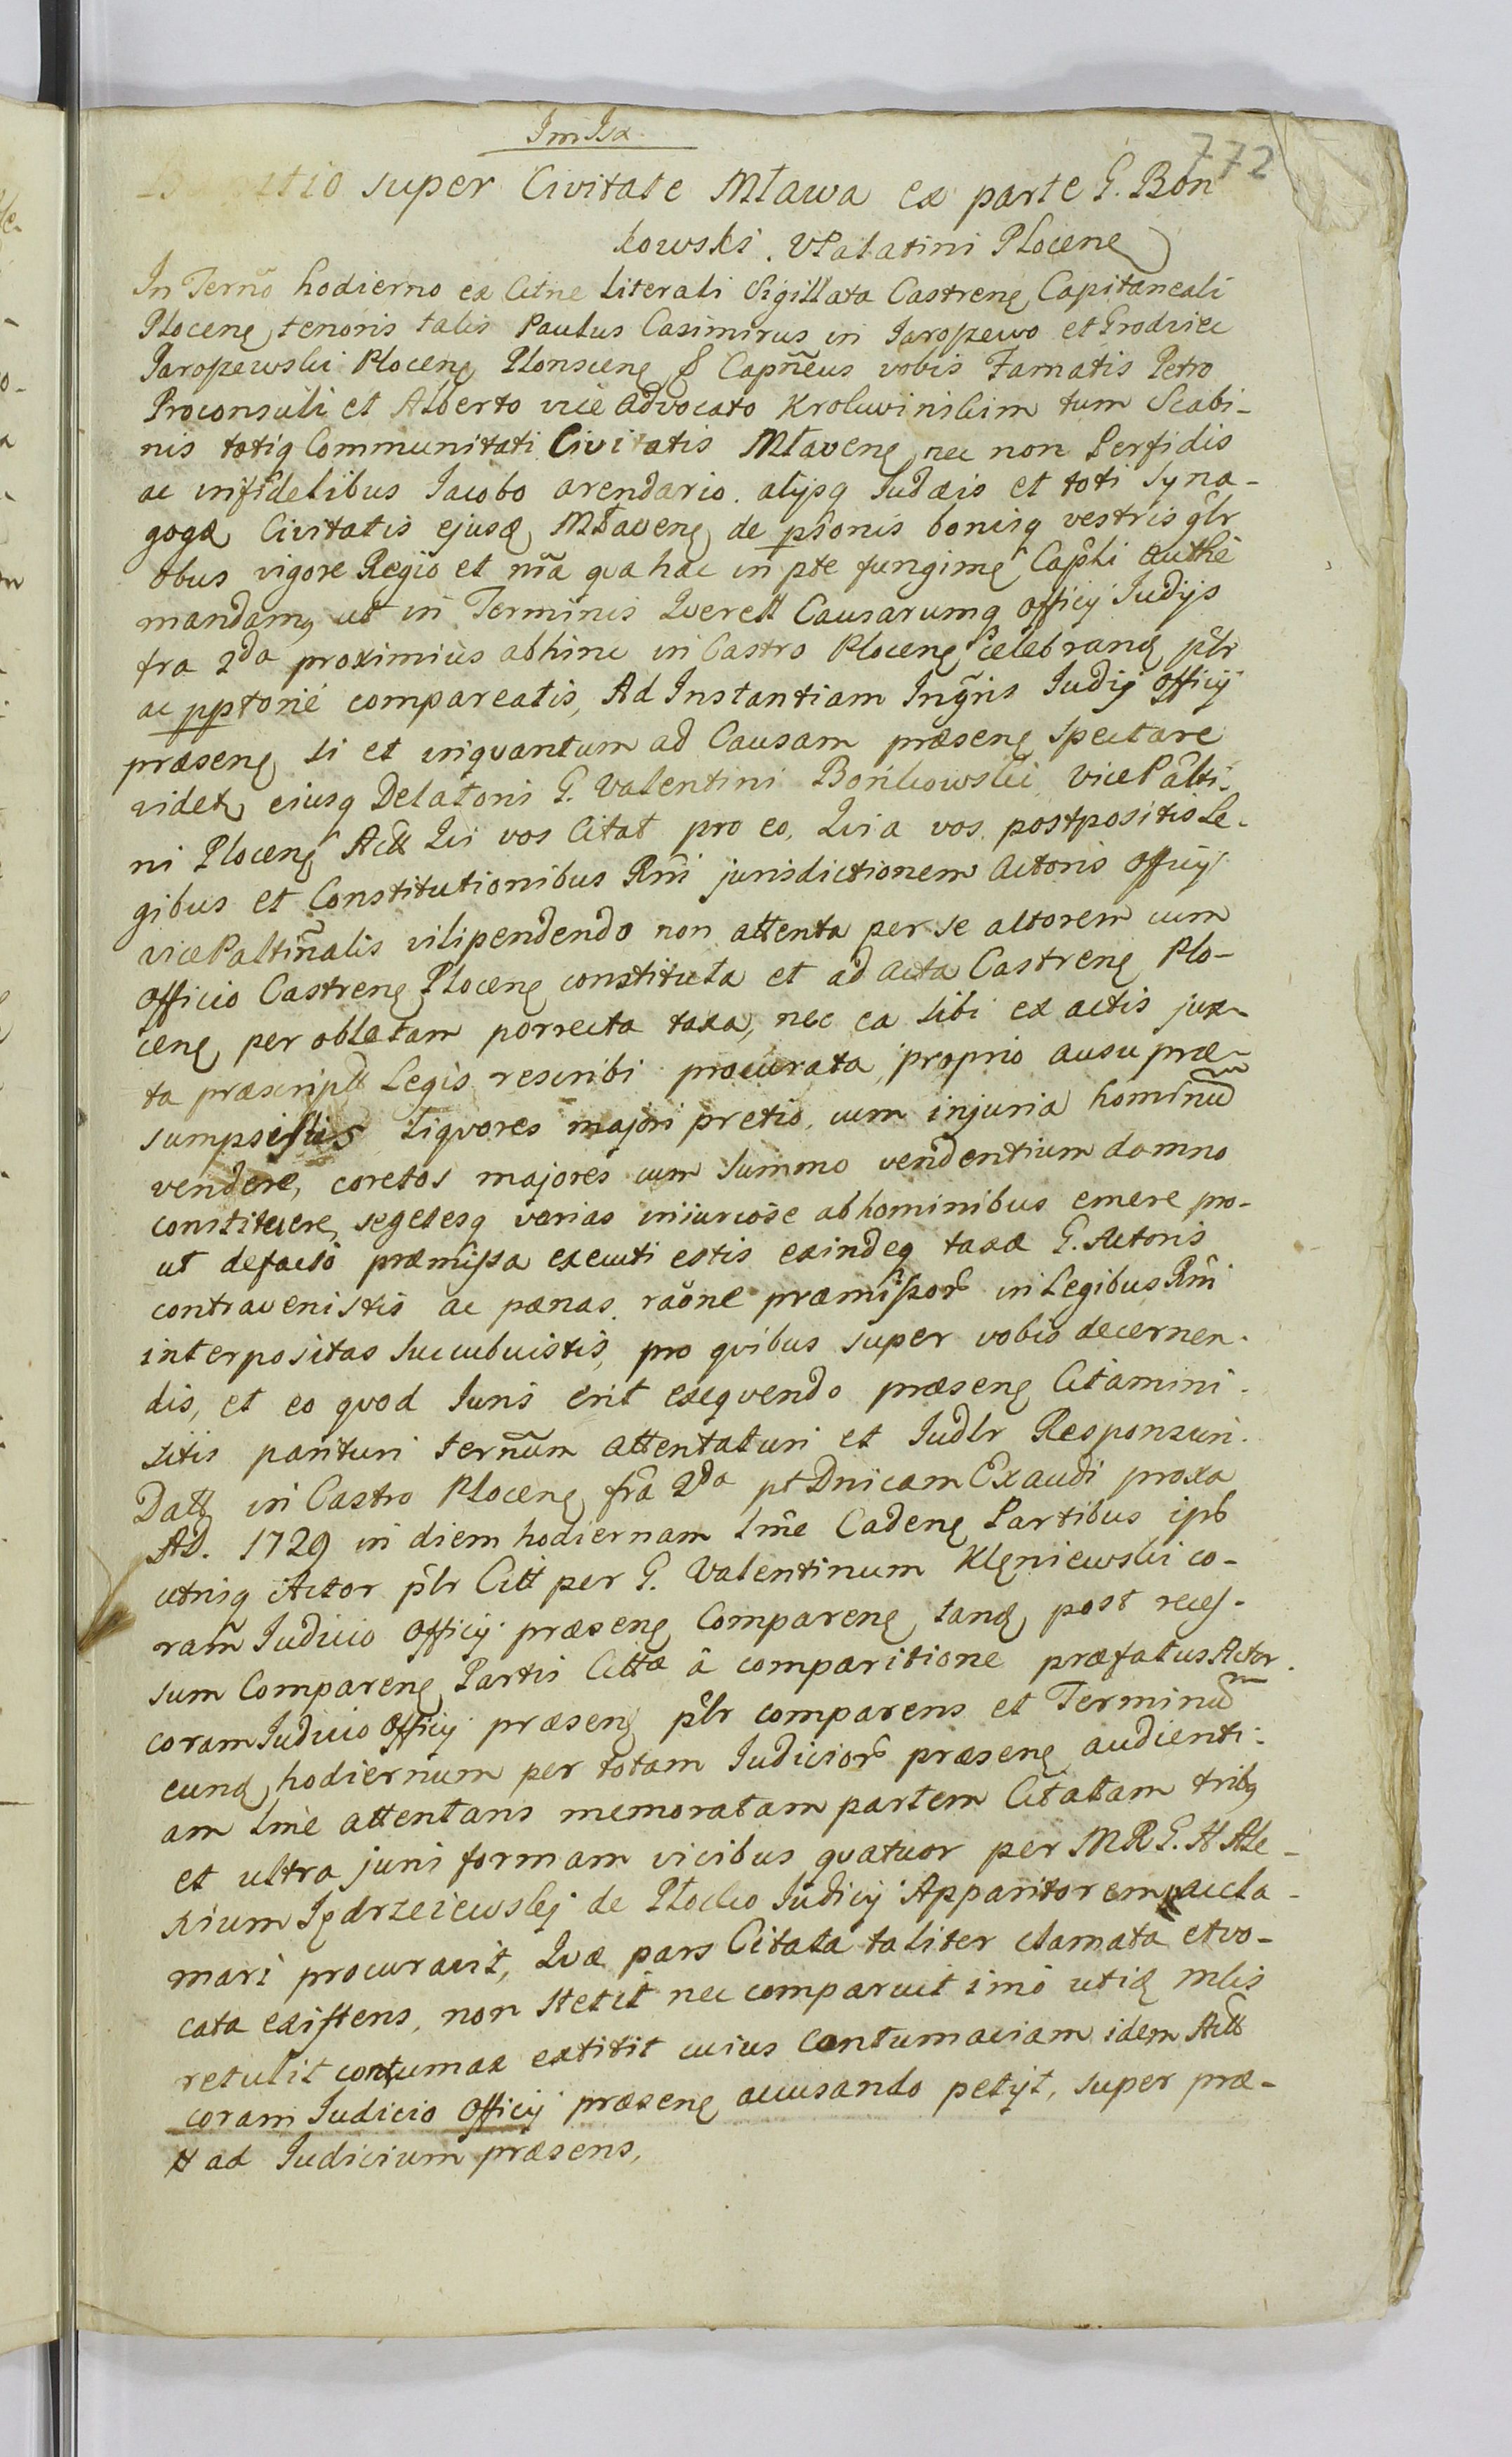 Im Isx
772
super Civitate Mława ex parte G. Bon
kowski. VPalatini Plocen
In Termo hodierno ex Citne literali Sigillata Castren Capitaneali
Plocen tenoris talis Paulus Casimirus in Jaroszewo et Grodziec
Jaroszewski Plocen Plonscen & Capneus vobis Famatis Petro
Proconsuli et Alberto vice advocato Krolewinskim tum Scabi-
nis totiq Communitati Civitatis Mlaven nec non Perfidis
ac infidelibus Jacobo arendario. alijsq Judæis et toti Syna-
gogæ Civitatis ejusd Mławen de psonis bonisq vestris glr
obus vigore Regio et ma qua hac in pte fungimr Capli authe
mandam ut in Terminis Querell Causarumq officij Judijs
fra 2da proximius abhinc in Castro Plocen celebrand plr
ac pptorie compareatis, Ad Instantiam Ingris Judij officij
præsen si et inquantum ad Causam præsen spectare
videt eiusq Delatoris G. Valentini Bońkowski, vicePalti-
ni Plocen Act Qui vos Citat pro eo, Quia vos postpositis Le-
gibus et Constitutionibus Rni jurisdictionem actoris officij
vicePaltinalis vilipendendo non attenta per se actorem cum
officio Castren Plocen constituta et ad acta Castren Plo-
cen per oblatam porrecta taxa, nec ea sibi ex actis jux-
ta præscript Legis rescribi procurata, proprio ausu præ-
sumpsistis Liqvores majori pretio, cum injuria hominum
vendere, coretos majores cum summo vendentium damno
constituere, segetesq varias iniuriose ab hominibus emere pro-
ut de facto præmissa executi estis exindeq taxæ G. Actoris
contravenistis ac pænas raone præmissor in Legibus Rni
interpositas succubuistis, pro qvibus super vobis decernen-
dis, et eo qvod Juris erit exeqvendo præsen Citamini.
sitis parituri termum attentaturi et Judlr Responsuri.
Datt in Castro Plocen fra 2da pt Dnicam Exaudi proxa
AD. 1729 in diem hodiernam lme Caden Partibus ipb
utrisq Actor plr Citt per G. Valentinum Klęniewski co-
ram Judicio officij præsen Comparen tand post reces-
sum Comparen Partis Cittæ â comparitione præfatus Actor.
coram Judicio officij præsen plr comparens et Terminum
eund hodiernum per totam Judicior præsen audienti-
am lme attentans memoratam partem Citatam tribq
et ultra juri formam vicibus qvatuor per MRG. A Ale-
xium Jędrzeiewskj de Plocko Judicij Apparitorem accla-
mari procuravit, Qvæ pars Citata taliter clamata et vo-
cata existens, non stetit nec comparuit imo utid mlis
retulit contumax extitit cuius Contumaciam idem Act
coram Judicio officij præsen accusando petijt, super præ-
# ad Judicium præsens,